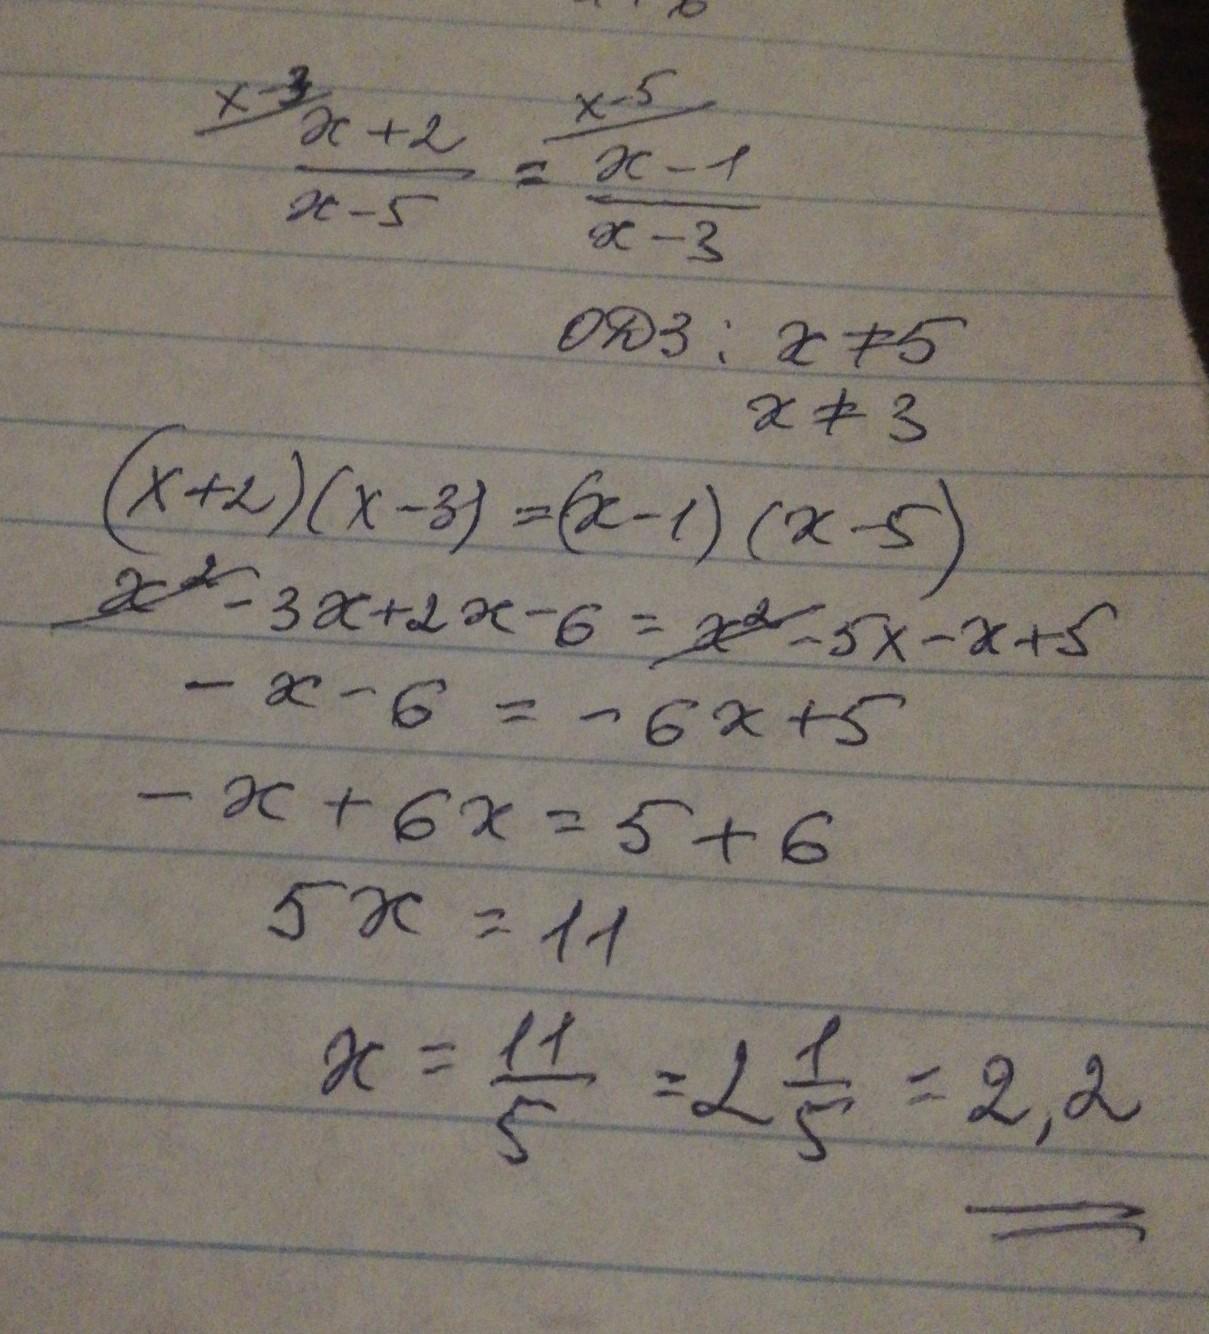 x-3 x+2 / x-5 = x-5 x-1 / x-3
ОДЗ: x ≠ 5
x ≠ 3
(x+2)(x-3) = (x-1)(x-5)
x² - 3x + 2x - 6 = x² - 5x - x + 5
- x - 6 = - 6x + 5
- x + 6x = 5 + 6
5x = 11
x = 11/5 = 2 1/5 = 2,2